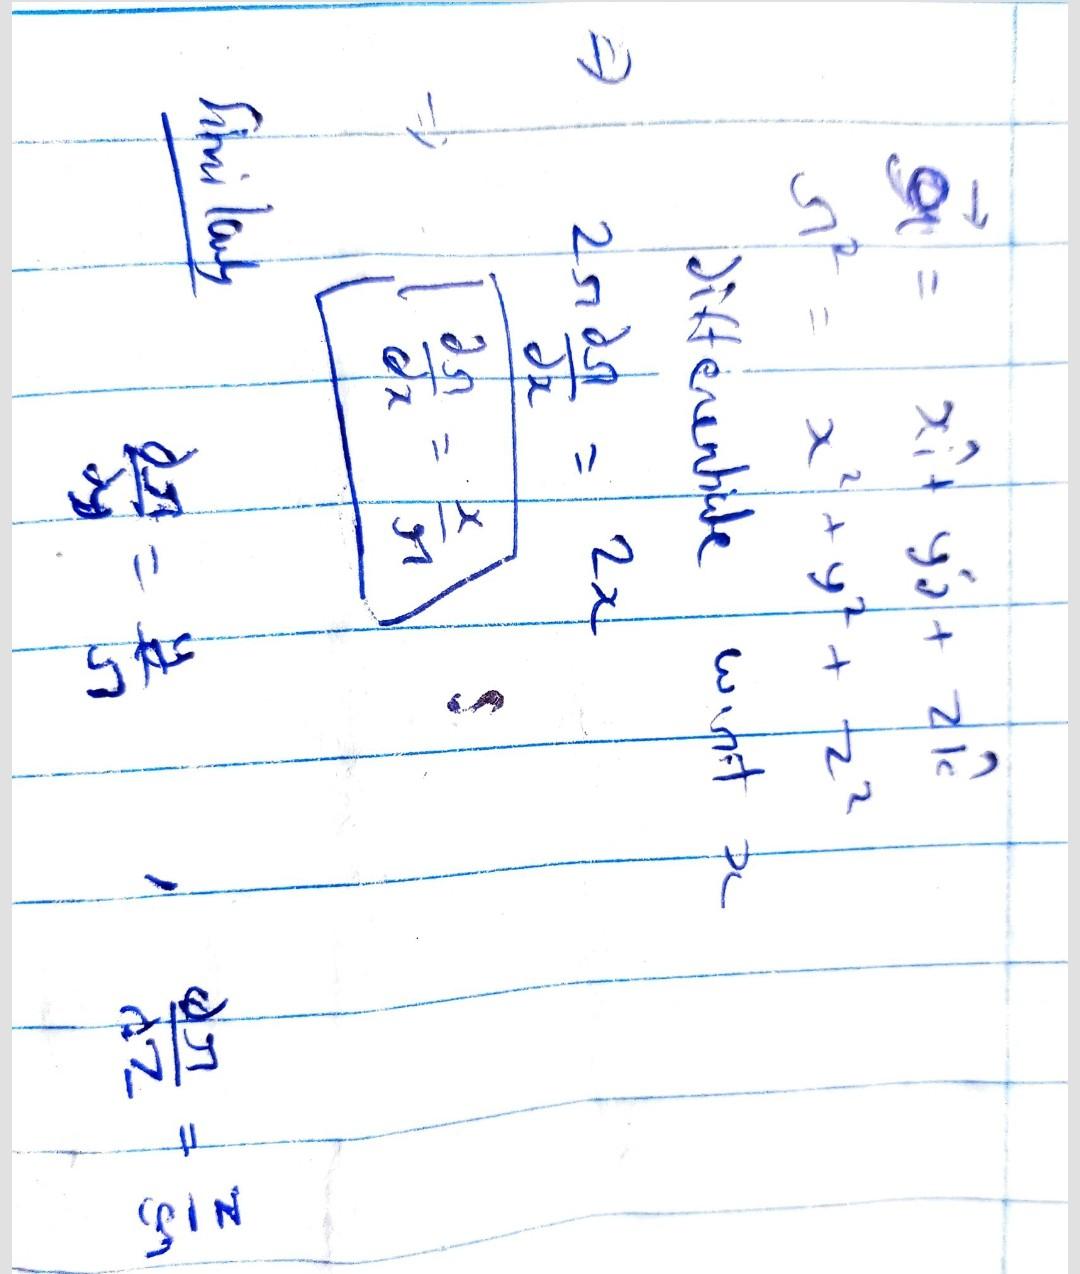 r⃗ = xî + yĵ + zk̂
r² = x² + y² + z²
Differentiate w.r.t x
⇒ 2r ∂r/∂x = 2x
⇒ ∂r/∂x = x/r
Similarly ∂r/∂y = y/r , ∂r/∂z = z/r